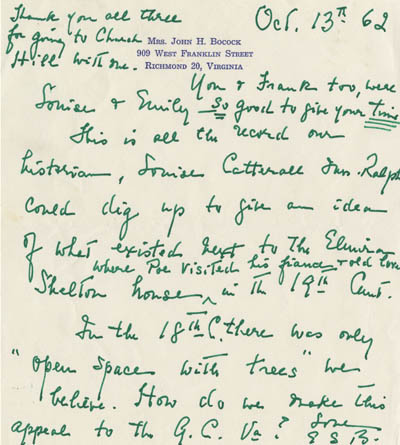 Thank you all three
for going to Church
Hill with me.
Oct. 13th 62
Mrs. John H. Bocock
909 West Franklin Street
Richmond 20, Virginia
You & Frank too, were
Louise & Emily so good to give your time
This is all the record our
historian, Louise Catterall Mrs. Ralph
could dig up to give an idea
of what existed next to The Elmira
where Poe visited his fiancé & old love
Shelton house ^ in the 19th Cent.
In the 18th C. there was only
"open space with trees" we
believe. How do we make this
appeal to the G. C. Va? Love
E S B.